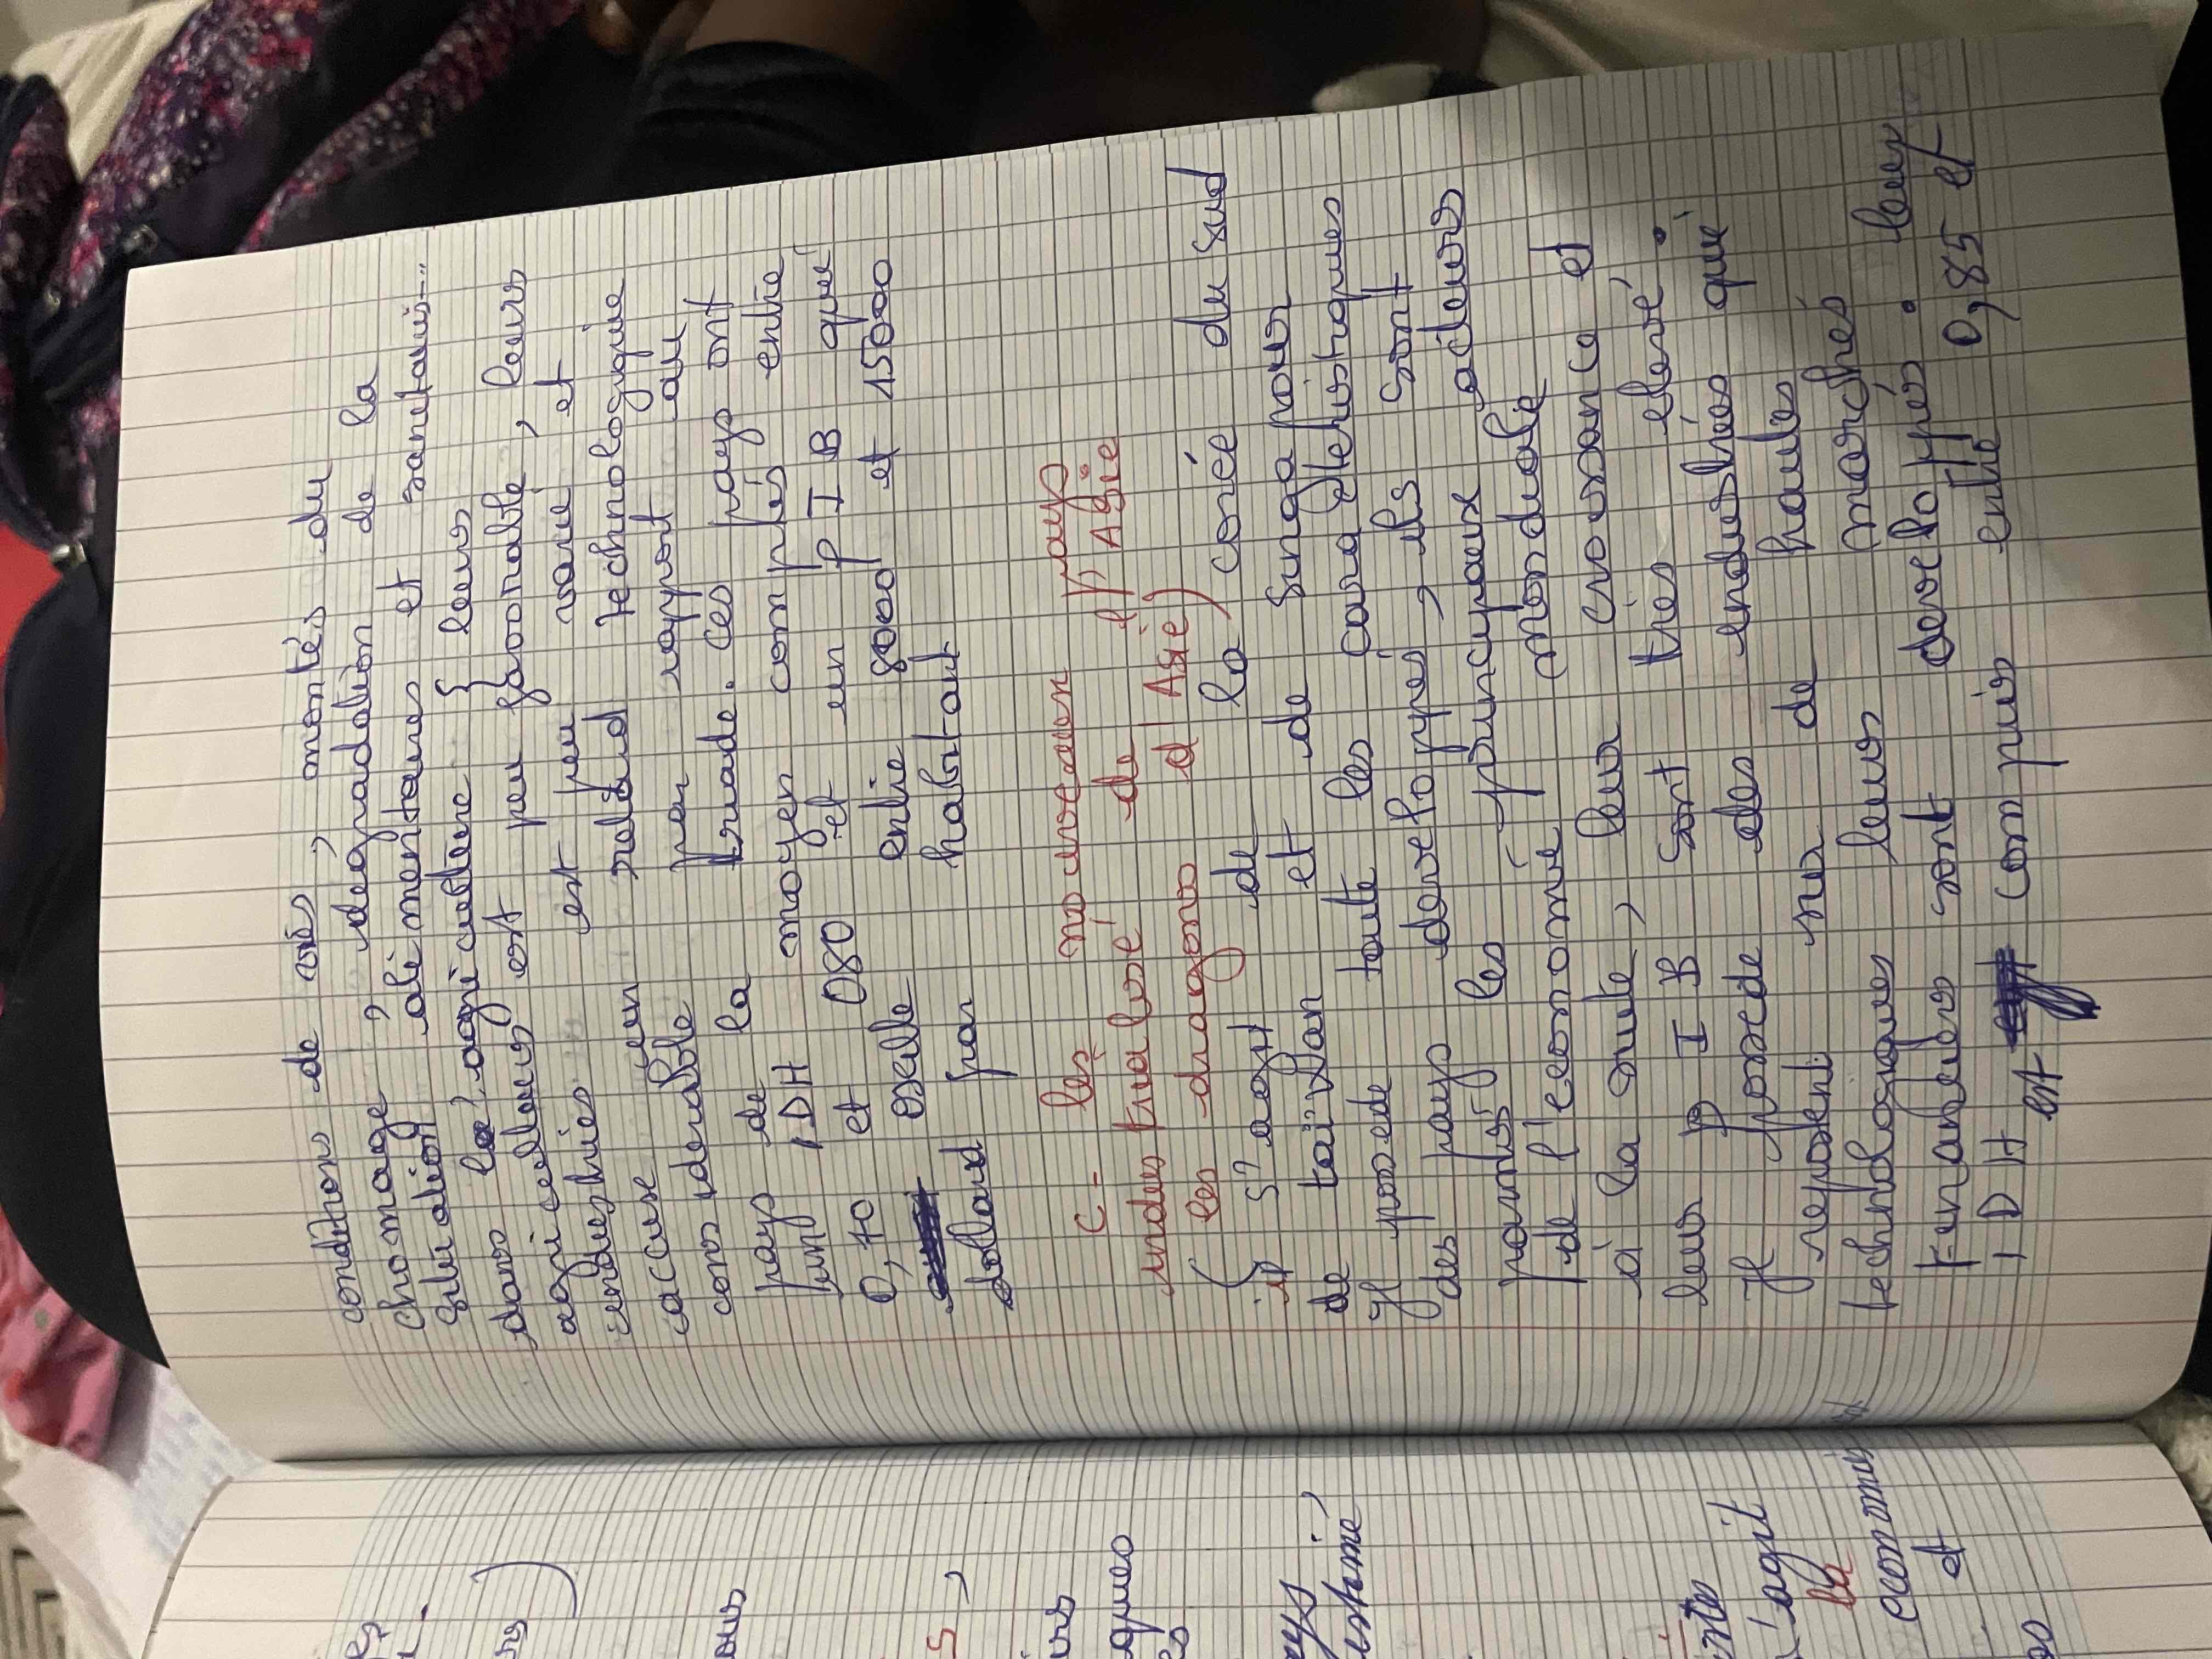 conditions de vie, montés du
chomage, degradation de la
situation alimentaires et sanetaris...
dans le? agriculture } leurs
agricultures est peu favorable, leurs
industries est peu varié et
accuse un retard technologique
considerable par rapport au
pays de la triade. ces pays ont
un IDH moyen compris entre
0,70 et 080 et un PIB qui
oscille entre 8000 et 15000
dollard par habitant
C- les nouveaux pays
industrialisé de l'Asie
(les dragons d'Asie)
il s'agit de la corée du sud
de taïwan et de Singapour
Il possede toute les caractéristiques
des pays developpés, ils sont
parmis les principaux acteurs
de l'economie mondiale
à la suite, leur croissance et
leur PIB sont très elevé.
Il possede des industries qui
reposent sur de hautes
technologiques leurs marchés
Financiers sont developpés. leur
IDH est compris entre 0,85 et
ours
s,
iques
pays,
estime
s'agit
la
economies
et